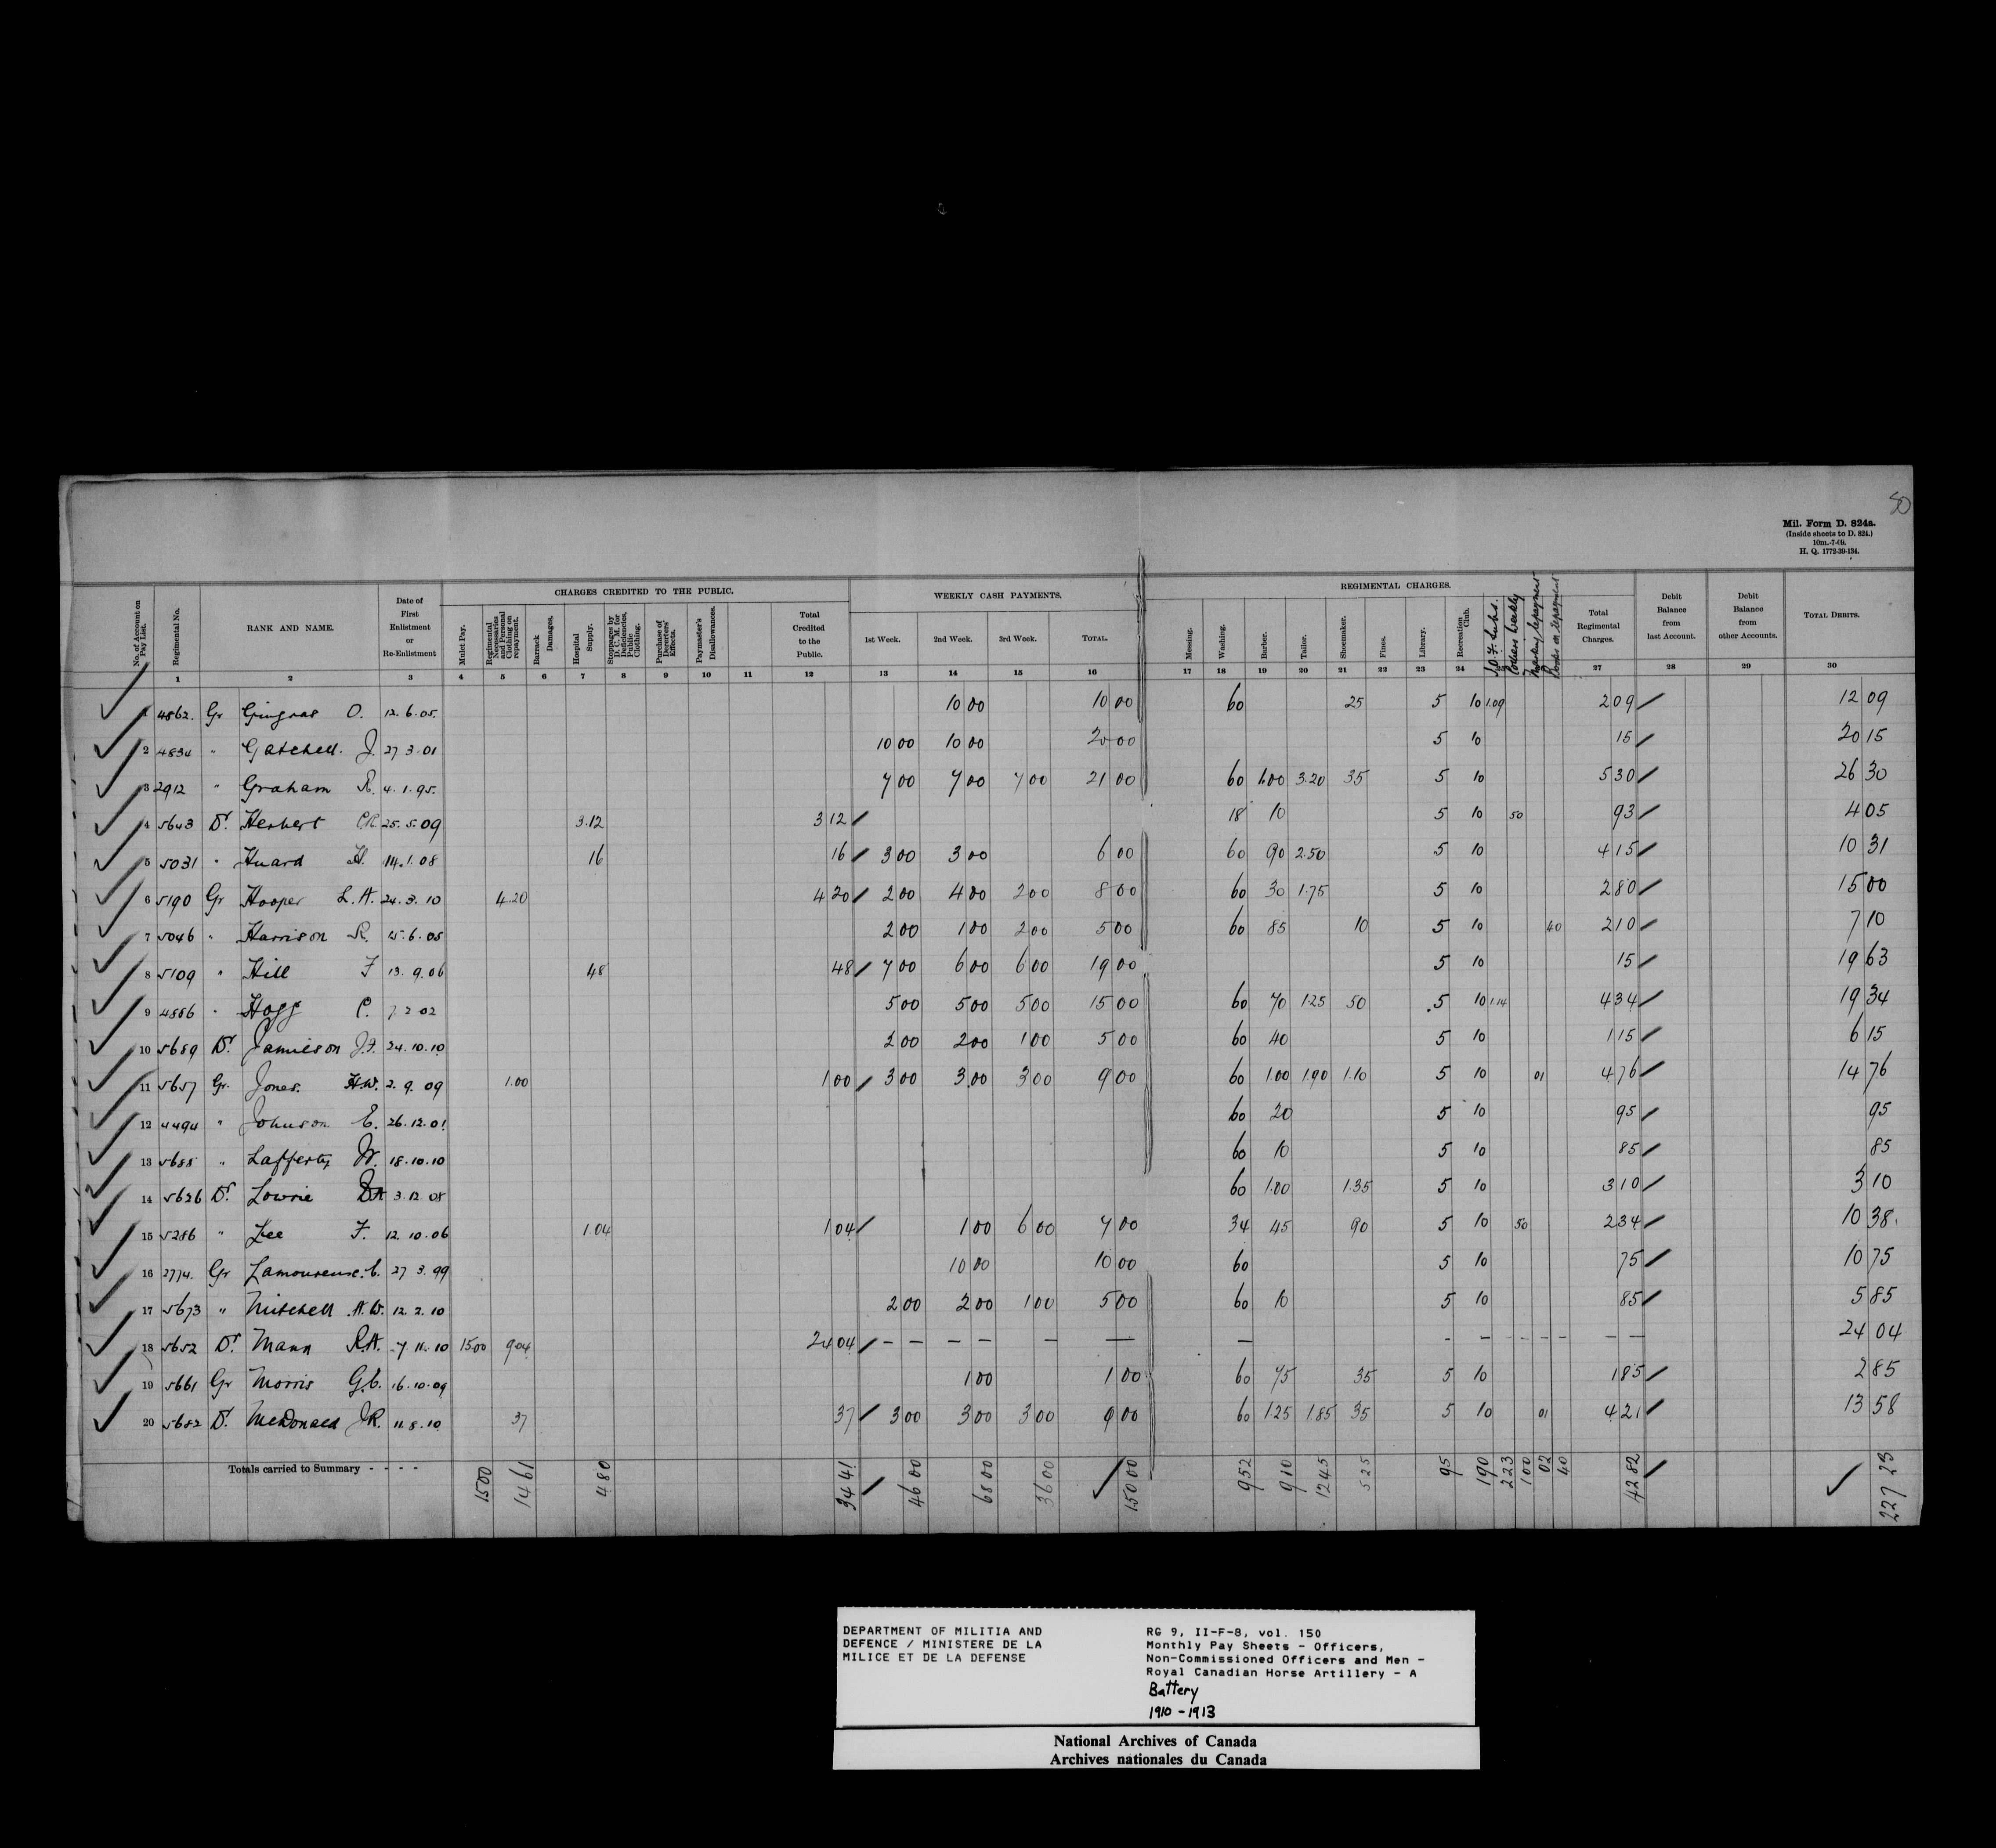 50
Mil. Form D. 824a.
(Inside sheets to D. 824.)
10m.-7-09.
H. Q. 1772-39-134.
CHARGES CREDITED TO THE PUBLIC. WEEKLY CASH PAYMENTS. REGIMENTAL CHARGES.
No. of Account on Pay List. Regimental No. RANK AND NAME. Date of First Enlistment or Re-Enlistment Mulct Pay. Regimental Necessaries and Personal Clothing on repayment. Barrack Damages. Hospital Supply. Stoppages by D. C. M. for Deficiencies, Public Clothing. Purchase of Deserters' Effects. Paymaster's Disallowances. Total Credited to the Public. 1st Week. 2nd Week. 3rd Week. TOTAL. Messing. Washing. Barber. Tailor. Shoemaker. Fines. Library. Recreation Club. Subs. weekly repayment Books on repayment Total Regimental Charges. Debit Balance from last Account. Debit Balance from other Accounts. TOTAL DEBITS.
1 2 3 4 5 6 7 8 9 10 11 12 13 14 15 16 17 18 19 20 21 22 23 24 27 28 29 30
1 4862. Gr Gingras O. 12.6.05. 10 00 10 00 60 25 5 10 1.09 2 09 12 09
2 4834 " Gatchell. J. 27 3.01 10 00 10 00 20 00 5 10 15 20 15
3 2912 " Graham R. 4.1.95. 7 00 7 00 7 00 21 00 60 1.00 3.20 35 5 10 5 30 26 30
4 5643 Dr. Herbert CR 25.5.09 3.12 3 12 18 10 5 10 50 93 4 05
5 5031 " Huard H. 14.1.08 16 16 3 00 3 00 6 00 60 90 2.50 5 10 4 15 10 31
6 5190 Gr Hooper L.A. 24.3.10 4.20 4 20 2 00 4 00 2 00 8 00 60 30 1.75 5 10 2 80 15 00
7 5046 " Harrison R. 15.6.05 2 00 1 00 2 00 5 00 60 85 10 5 10 40 2 10 7 10
8 5109 " Hill F 13.9.06 48 48 7 00 6 00 6 00 19 00 5 10 15 19 63
9 4886 " Hogg C. 7.2 02 5 00 5 00 5 00 15 00 60 70 1.25 50 5 10 1.14 4 34 19 34
10 5689 Dr. Jamieson J.F. 24.10.10 2 00 2 00 1 00 5 00 60 40 5 10 1 15 6 15
11 5657 Gr. Jones. H.W. 2.9.09 1.00 1 00 3 00 3 00 3 00 9 00 60 1.00 1.90 1.10 5 10 01 4 76 14 76
12 4494 " Johnson E. 26.12.01 60 20 5 10 95 95
13 5688 " Lafferty W. 18.10.10 60 10 5 10 85 85
14 5626 Dr. Lowrie 3.12.08 60 1.00 1.35 5 10 3 10 3 10
15 5286 " Lee F. 12.10.06 1.04 1 04 1 00 6 00 7 00 34 45 90 5 10 50 2 34 10 38
16 2774. Gr Lamoureux. C. 27 3.99 10 00 10 00 60 5 10 75 10 75
17 5673 " Mitchell A.W. 12.2.10 2 00 2 00 1 00 5 00 60 10 5 10 85 5 85
18 5652 Dr. Mann R.H. 7 11.10 15.00 9.04 24 04 — — — — — — — — — — — — — — — 24 04
19 5661 Gr Morris G.C. 16.10.09 1 00 1 00 60 75 35 5 10 1 85 2 85
20 5682 Dr. McDonald J.R. 11.8.10 37 37 3 00 3 00 3 00 9 00 60 1.25 1.85 35 5 10 01 4 21 13 58
Totals carried to Summary - - - - 15 00 14 61 4 80 34 41 46 00 68 00 36 00 150 00 9 52 9 10 12 45 5 25 95 1 90 2 23 1 00 02 40 42 82 227 23
DEPARTMENT OF MILITIA AND
DEFENCE / MINISTERE DE LA
MILICE ET DE LA DEFENSE
RG 9, II-F-8, vol. 150
Monthly Pay Sheets - Officers,
Non-Commissioned Officers and Men -
Royal Canadian Horse Artillery - A
Battery
1910 - 1913
National Archives of Canada
Archives nationales du Canada